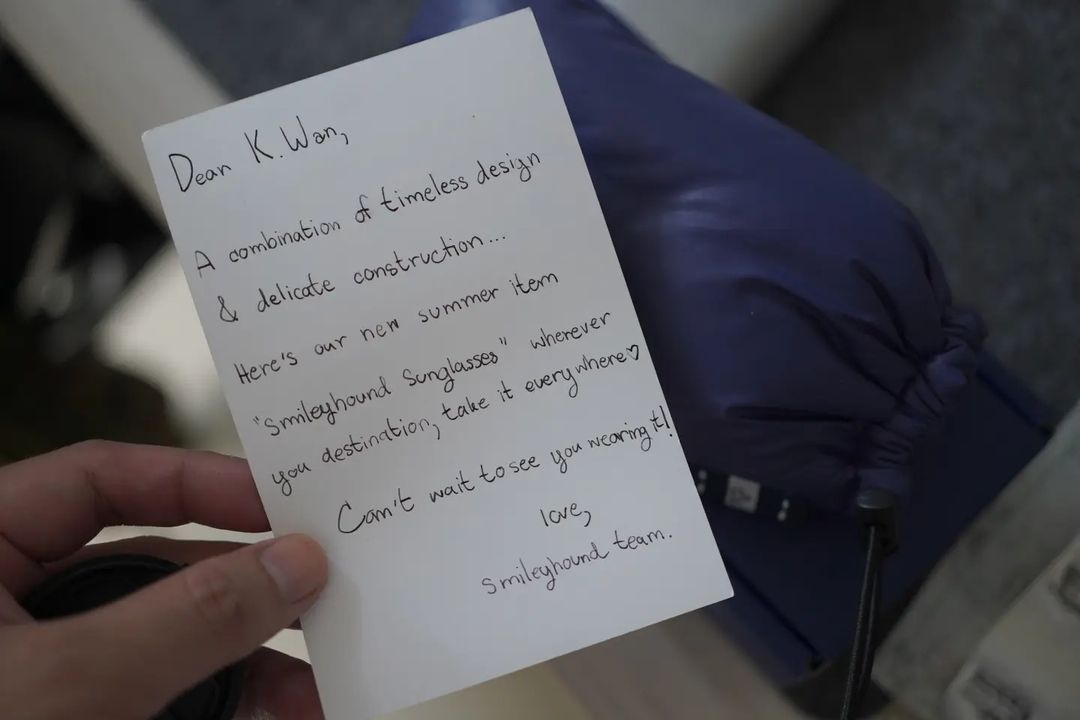 Dear K. Wan,
A combination of timeless design
& delicate construction...
Here's our new summer item
"Smileyhound Sunglasses" wherever
you destination, take it everywhere♡
Can't wait to see you wearing it!
love,
smileyhound team.